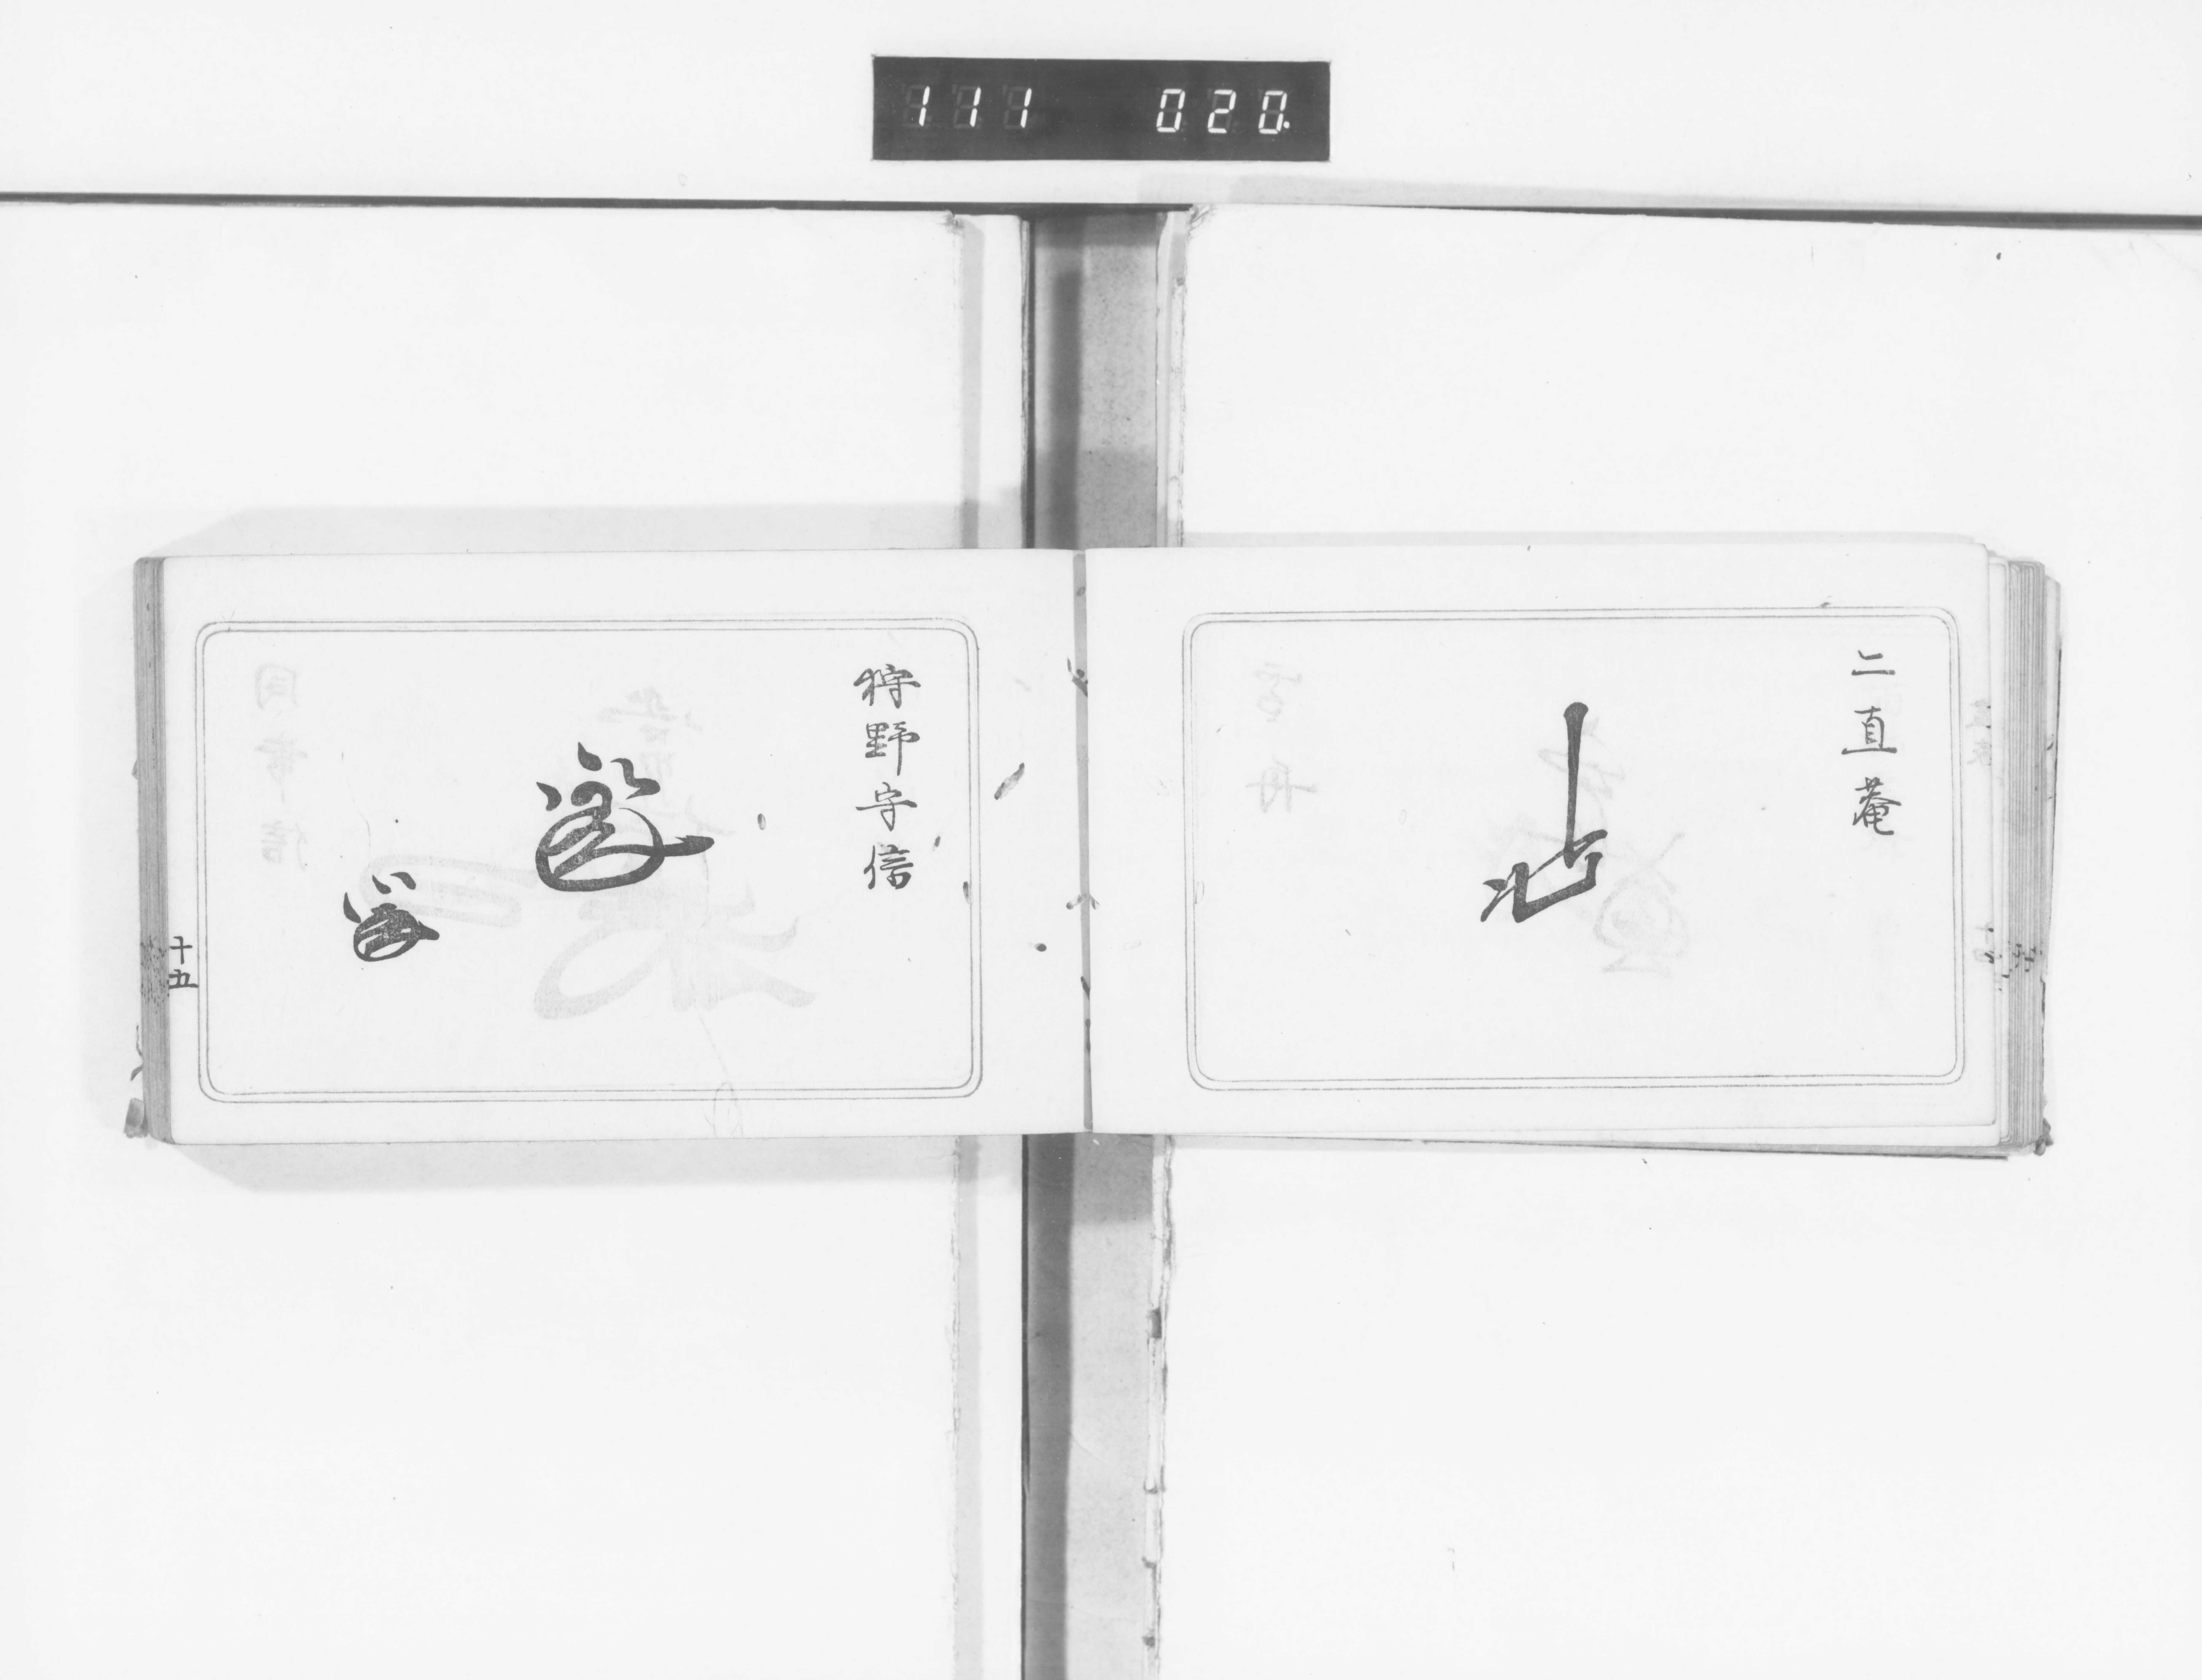 111 020.
二直菴
狩野守信
十五